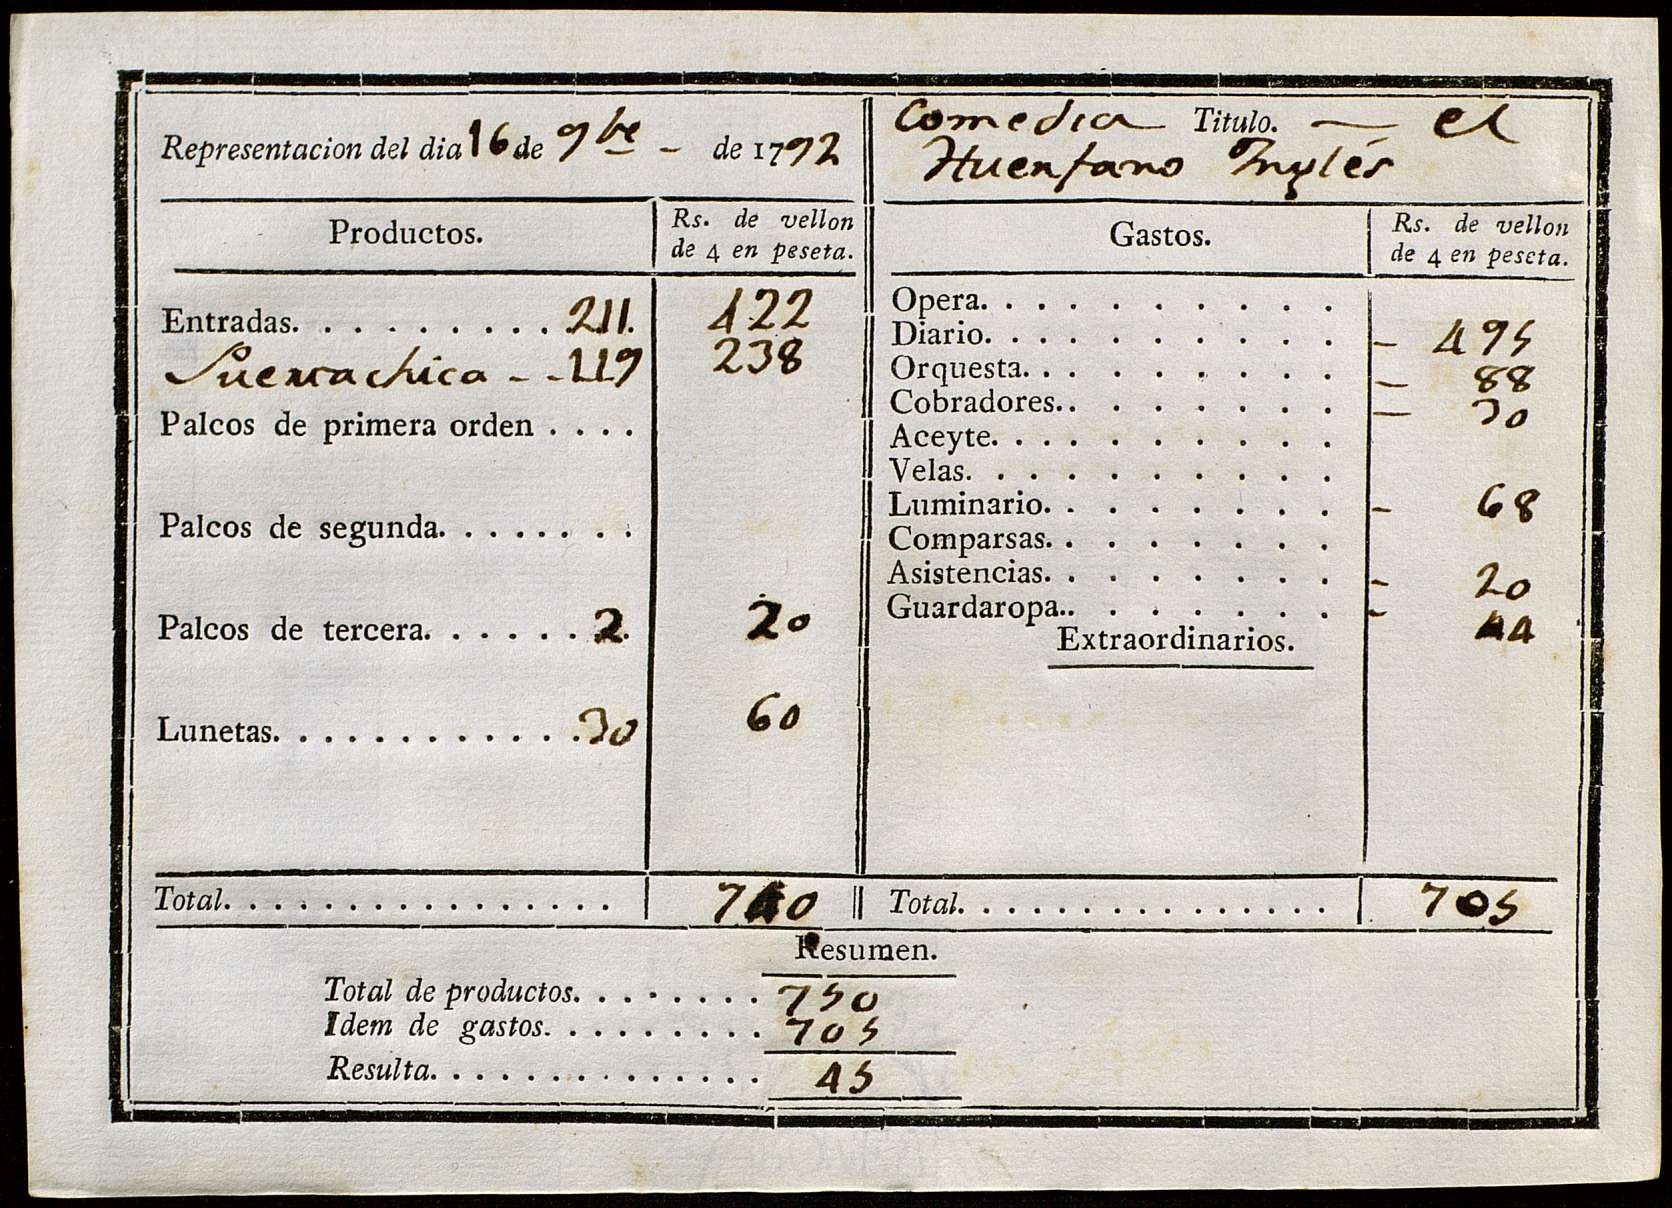 Representacion del dia 16 de 9bre - de 1792
Comedia Titulo. — el
Huerfano Inglés
Productos.
Rs. de vellon
de 4 en peseta.
Entradas. . . . . . . . . . 211. 422
Puerta chica - - 119 238
Palcos de primera orden . . . .
Palcos de segunda. . . . . . . .
Palcos de tercera. . . . . . . 2. 20
Lunetas. . . . . . . . . . . . . . 30 60
Total. . . . . . . . . . . . . . . . 740
Gastos.
Rs. de vellon
de 4 en peseta.
Opera. . . . . . . . . . .
Diario. . . . . . . . . . . - 495
Orquesta. . . . . . . . . . - 88
Cobradores. . . . . . . . . - 30
Aceyte. . . . . . . . . . .
Velas. . . . . . . . . . .
Luminario. . . . . . . . . - 68
Comparsas. . . . . . . . .
Asistencias. . . . . . . . . - 20
Guardaropa. . . . . . . . . -
Extraordinarios.
Total. . . . . . . . . . . . . . . 705
Resumen.
Total de productos. . . . . . . . 750
Idem de gastos. . . . . . . . . . 705
Resulta. . . . . . . . . . . . . . 45